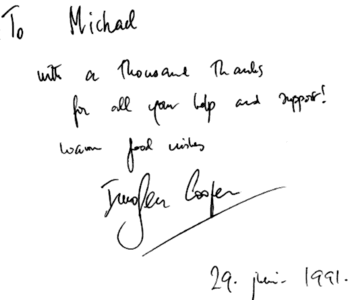 To Michael
with a thousand thanks
for all your help and support!
warm good wishes
Imogen Cooper
29. juni. 1991.